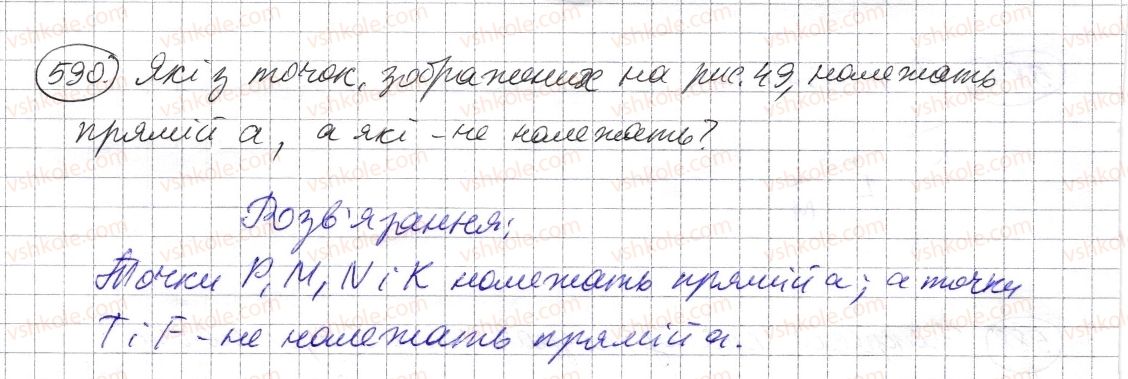 590. Які з точок, зображених на рис. 49, належать
прямій a, а які - не належать?
Розв'язання:
Точки P, M, N і K належать прямій a; а точки
T і F - не належать прямій a.